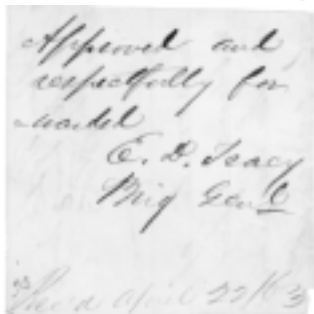 Approved and
respectfully for
warded
E. D. Tracy
Brig Genl
Rec'd April 22/63